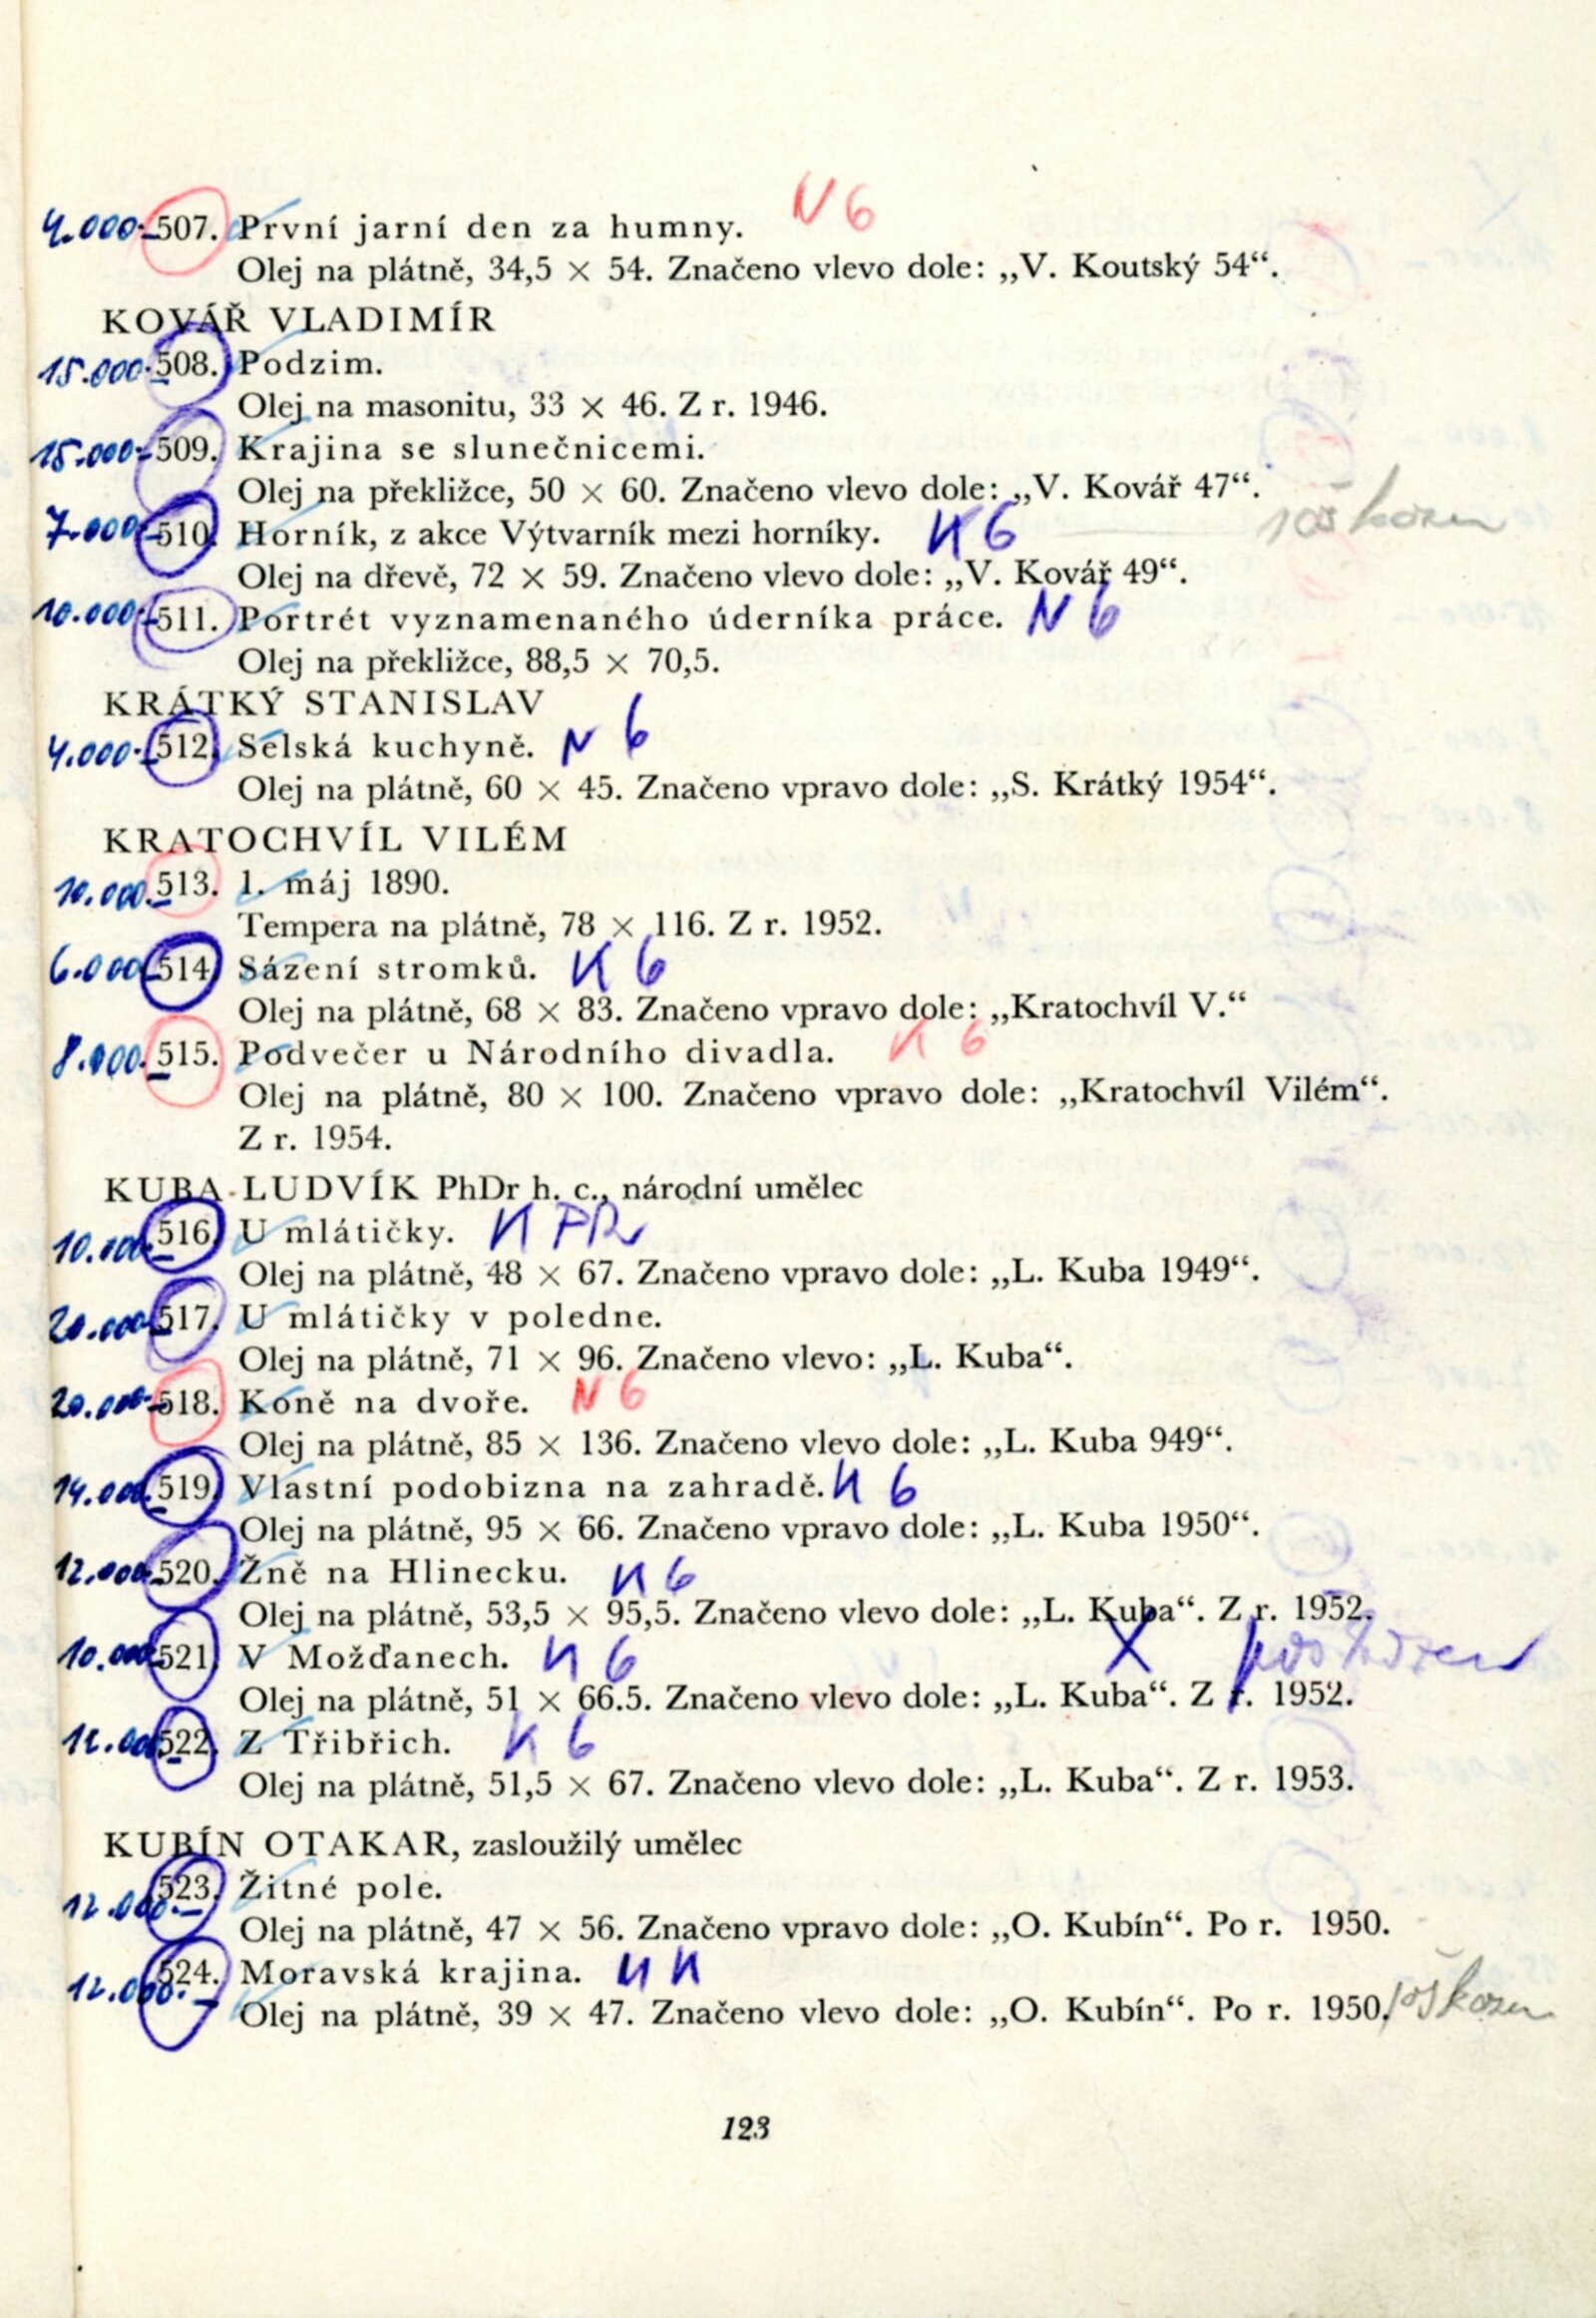 4.000.– 507. První jarní den za humny. N 6
Olej na plátně, 34,5 × 54. Značeno vlevo dole: „V. Koutský 54“.
KOVÁŘ VLADIMÍR
15.000.– 508. Podzim.
Olej na masonitu, 33 × 46. Z r. 1946.
15.000.– 509. Krajina se slunečnicemi.
Olej na překližce, 50 × 60. Značeno vlevo dole: „V. Kovář 47“.
7.000.– 510. Horník, z akce Výtvarník mezi horníky. N 6 poškozen
Olej na dřevě, 72 × 59. Značeno vlevo dole: „V. Kovář 49“.
10.000.– 511. Portrét vyznamenaného úderníka práce. N 6
Olej na překližce, 88,5 × 70,5.
KRÁTKÝ STANISLAV
4.000.– 512. Selská kuchyně. N 6
Olej na plátně, 60 × 45. Značeno vpravo dole: „S. Krátký 1954“.
KRATOCHVÍL VILÉM
10.000.– 513. 1. máj 1890.
Tempera na plátně, 78 × 116. Z r. 1952.
6.000.– 514. Sázení stromků. N 6
Olej na plátně, 68 × 83. Značeno vpravo dole: „Kratochvíl V.“
8.000.– 515. Podvečer u Národního divadla. N 6
Olej na plátně, 80 × 100. Značeno vpravo dole: „Kratochvíl Vilém“.
Z r. 1954.
KUBA LUDVÍK PhDr h. c., národní umělec
10.000.– 516. U mlátičky. N PR
Olej na plátně, 48 × 67. Značeno vpravo dole: „L. Kuba 1949“.
20.000.– 517. U mlátičky v poledne.
Olej na plátně, 71 × 96. Značeno vlevo: „L. Kuba“.
20.000.– 518. Koně na dvoře. N 6
Olej na plátně, 85 × 136. Značeno vlevo dole: „L. Kuba 949“.
14.000.– 519. Vlastní podobizna na zahradě. N 6
Olej na plátně, 95 × 66. Značeno vpravo dole: „L. Kuba 1950“.
12.000.– 520. Žně na Hlinecku. N 6
Olej na plátně, 53,5 × 95,5. Značeno vlevo dole: „L. Kuba“. Z r. 1952.
10.000.– 521. V Možďanech. N 6 X poškozen
Olej na plátně, 51 × 66.5. Značeno vlevo dole: „L. Kuba“. Z r. 1952.
522. Z Třibřich. N 6
Olej na plátně, 51,5 × 67. Značeno vlevo dole: „L. Kuba“. Z r. 1953.
KUBÍN OTAKAR, zasloužilý umělec
12.000.– 523. Žitné pole.
Olej na plátně, 47 × 56. Značeno vpravo dole: „O. Kubín“. Po r. 1950.
12.000.– 524. Moravská krajina.
Olej na plátně, 39 × 47. Značeno vlevo dole: „O. Kubín“. Po r. 1950. poškozen
123